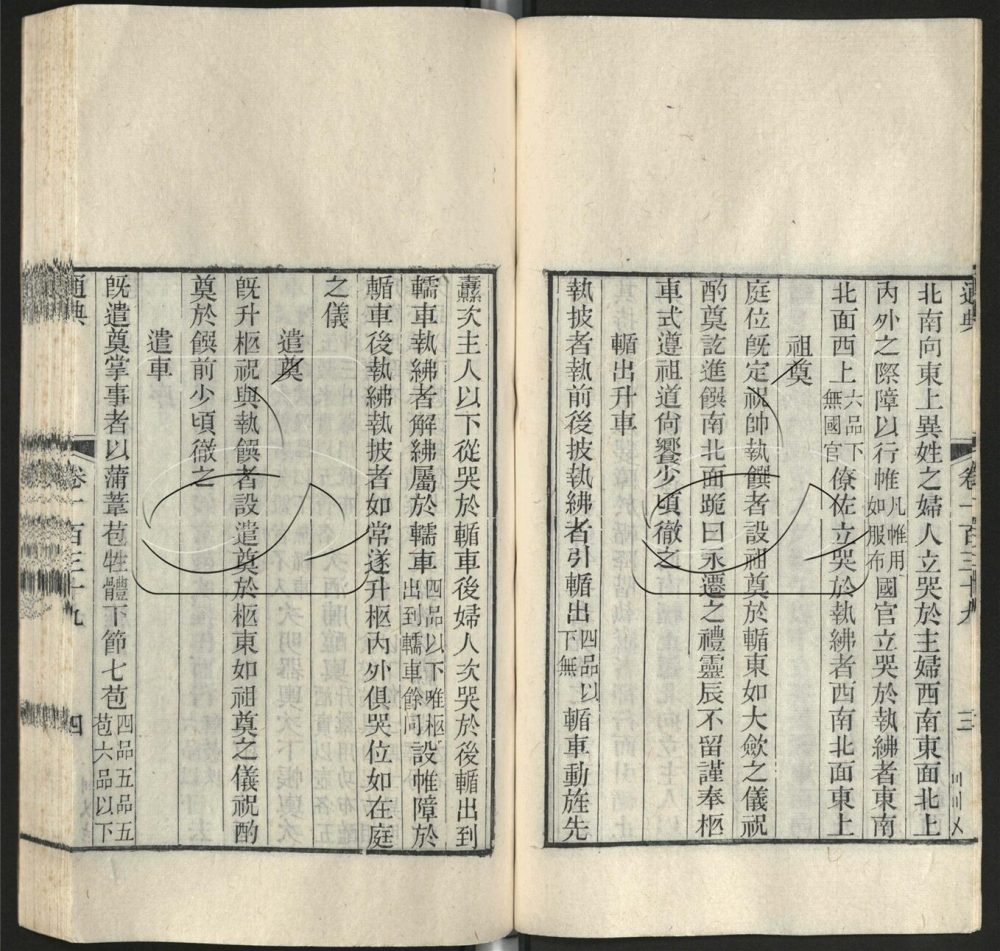 通典 卷一百三十九 三
北南向東上異姓之婦人立哭於主婦西南東面北上
內外之際障以行帷凡帷用如服布國官立哭於執紼者東南
北面西上六品下無國官僚佐立哭於執紼者西南北面東上
祖奠
庭位旣定祝帥執饌者設祖奠於輴東如大斂之儀祝
酌奠訖進饌南北面跪曰永遷之禮靈辰不留謹奉柩
車式遵祖道尙饗少頃徹之
輴出升車
執披者執前後披執紼者引輴出四品以下無輴車動旌先
纛次主人以下從哭於輴車後婦人次哭於後輴出到
轜車執紼者解紼屬於轜車四品以下唯柩出到轜車餘同設帷障於
輴車後執紼執披者如常遂升柩內外俱哭位如在庭
之儀
遣奠
旣升柩祝與執饌者設遣奠於柩東如祖奠之儀祝酌
奠於饌前少頃徹之
遣車
旣遣奠掌事者以蒲葦苞牲體下節七苞四品五品五苞六品以下
通典 卷一百三十九 四